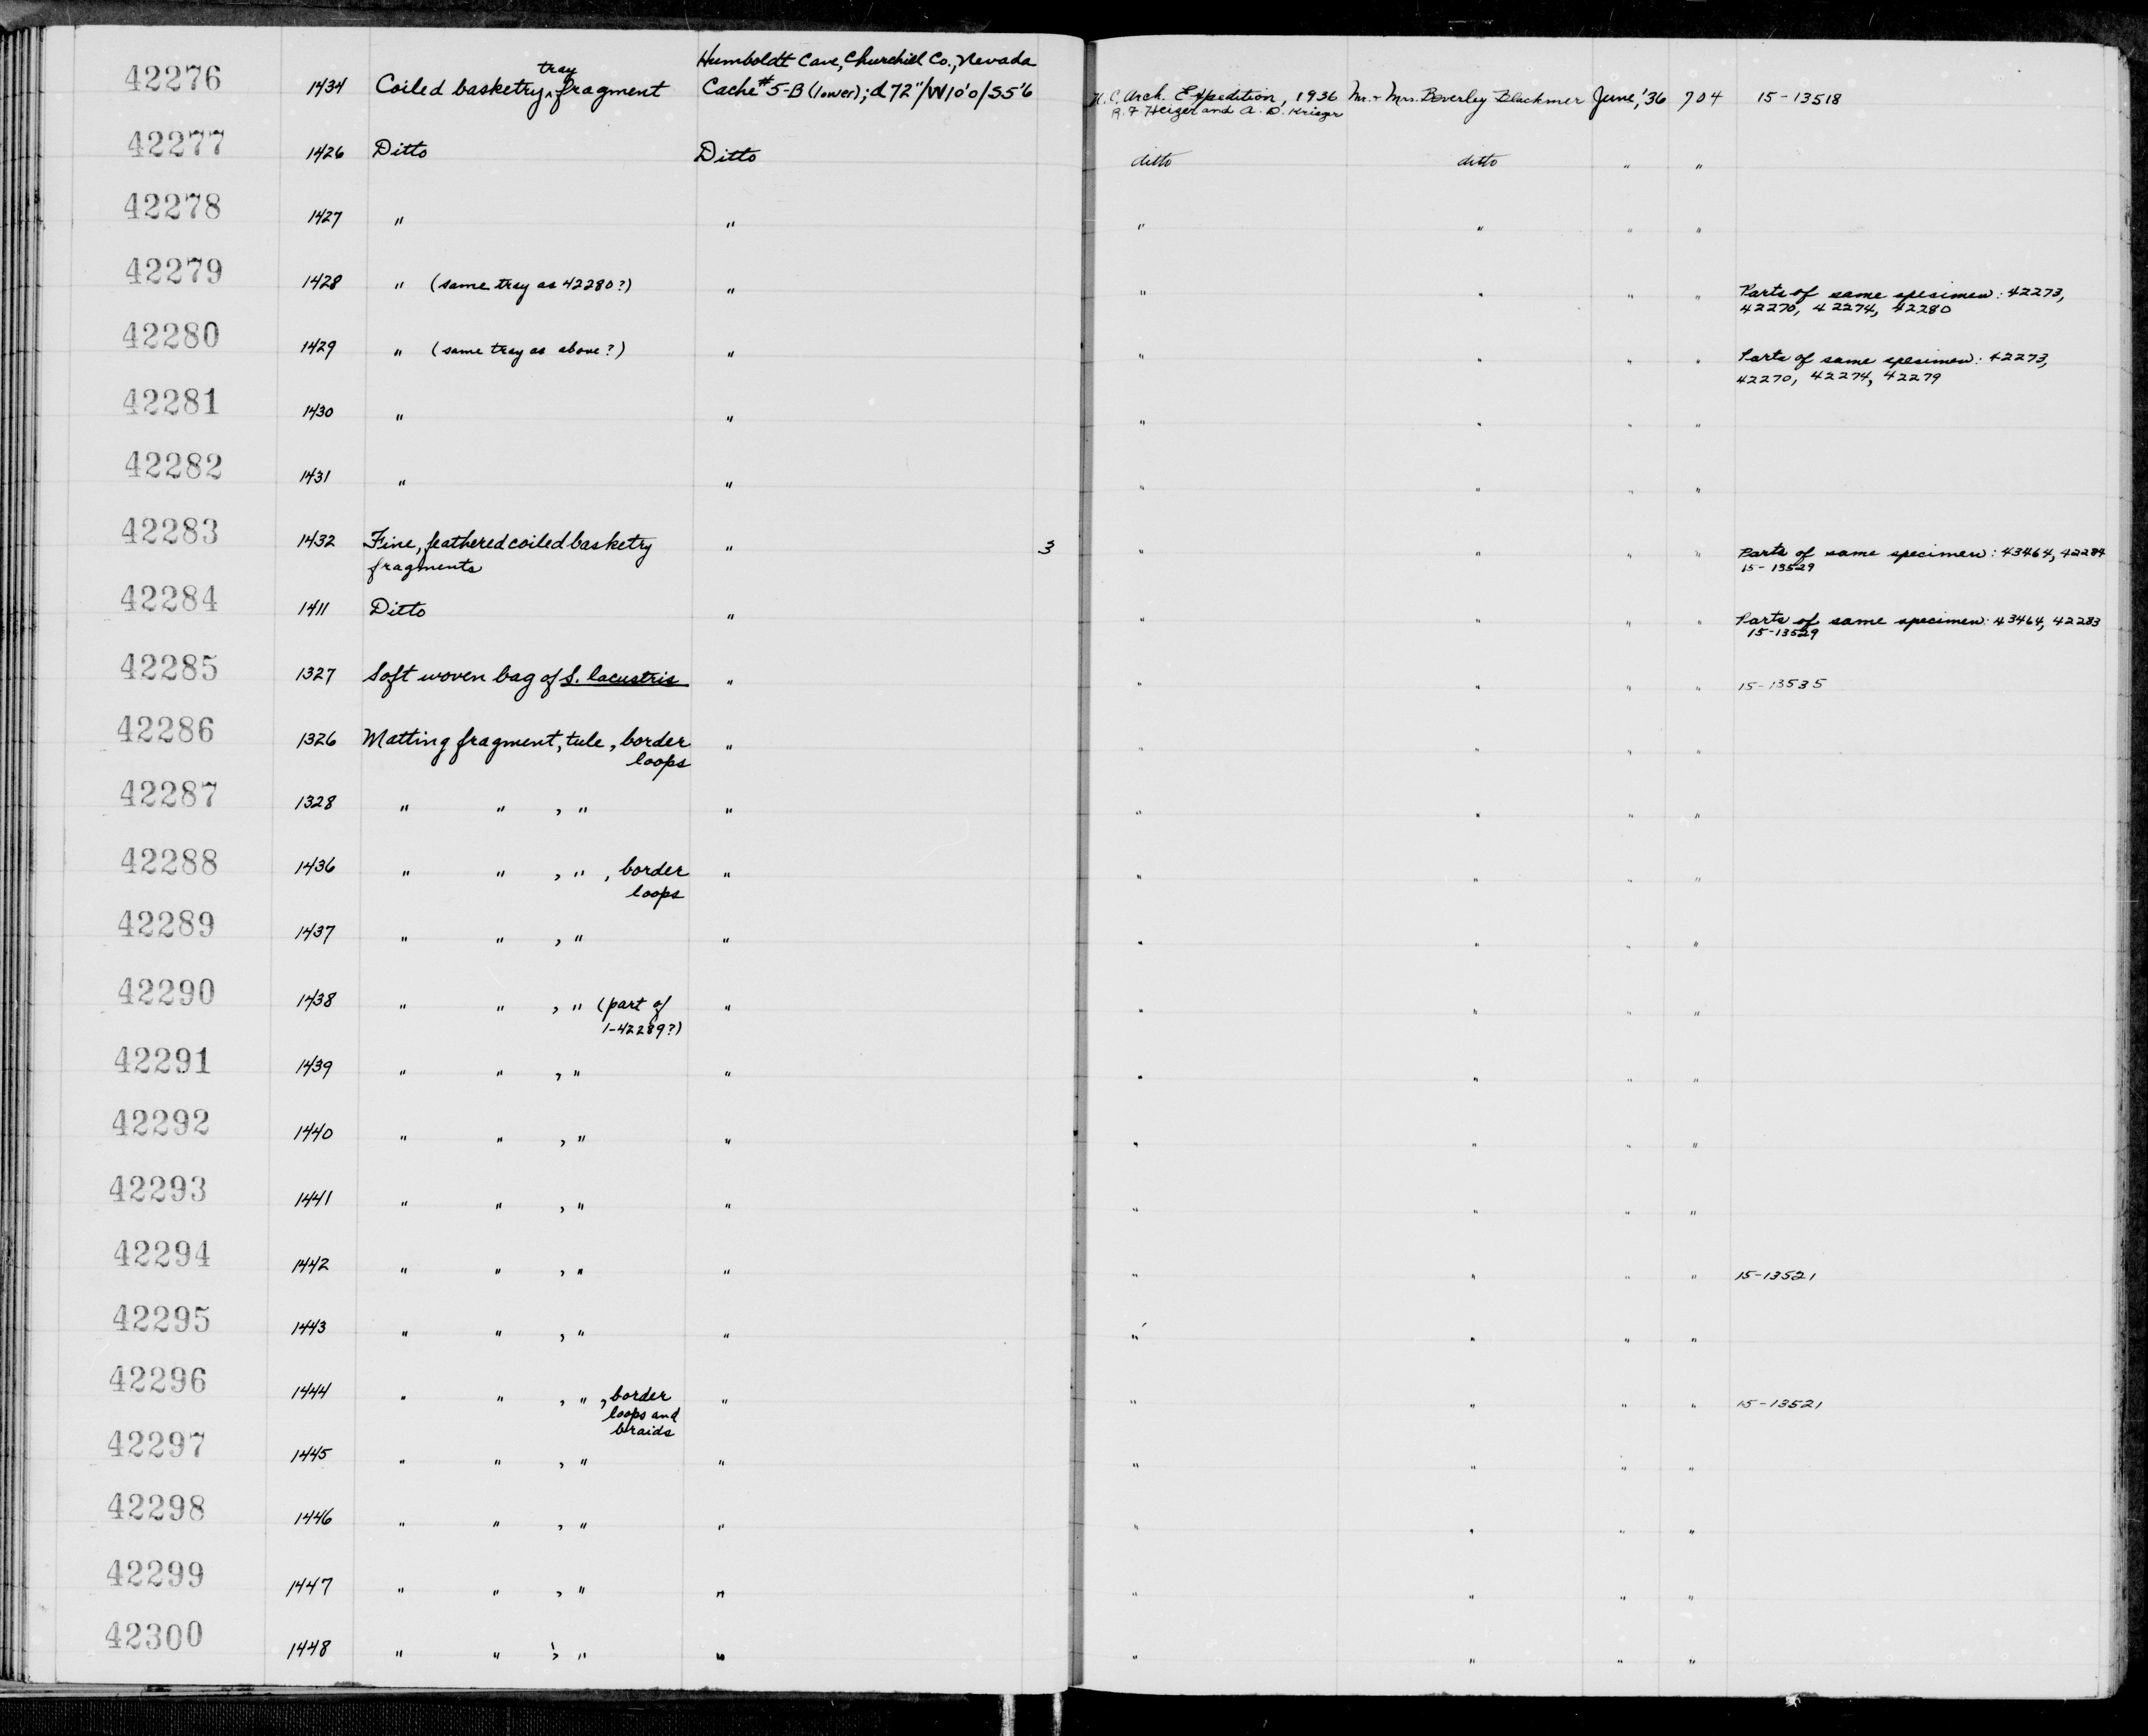 Humboldt Cave, Churchill Co., Nevada
tray
42276 1434 Coiled basketry ^ fragment Cache #5-B (lower); d 72"/W10'0/S5'6 Arch. Expedition, 1936 Mr. + Mrs. Beverley Blackmer June, '36 704 15-13518
R. F. Heizer and A. D. Krieger
42277 1426 Ditto Ditto ditto ditto " "
42278 1427 " " " " " "
42279 1428 " (same tray as 42280?) " " " " " Parts of same specimen: 42273,
42270, 42274, 42280
42280 1429 " (same tray as above?) " " " " " Parts of same specimen: 42273,
42270, 42274, 42279
42281 1430 " " " " " "
42282 1431 " " " " " "
42283 1432 Fine, feathered coiled basketry " 3 " " " " Parts of same specimen: 43464, 42284
fragments 15-13529
42284 1411 Ditto " " " " " Parts of same specimen: 43464, 42283
15-13529
42285 1327 Soft woven bag of S. lacustris " " " " " 15-13535
42286 1326 Matting fragment, tule, border " " " " "
loops
42287 1328 " " , " " " " " "
42288 1436 " " , " , border " " " " "
loops
42289 1437 " " , " " " " " "
42290 1438 " " , " (part of " " " " "
1-42289?)
42291 1439 " " , " " " " " "
42292 1440 " " , " " " " " "
42293 1441 " " , " " " " " "
42294 1442 " " , " " " " " " 15-13521
42295 1443 " " , " " " " " "
42296 1444 " " , " , border " " " " " 15-13521
loops and
braids
42297 1445 " " , " " " " " "
42298 1446 " " , " " " " " "
42299 1447 " " , " " " " " "
42300 1448 " " , " " " " " "